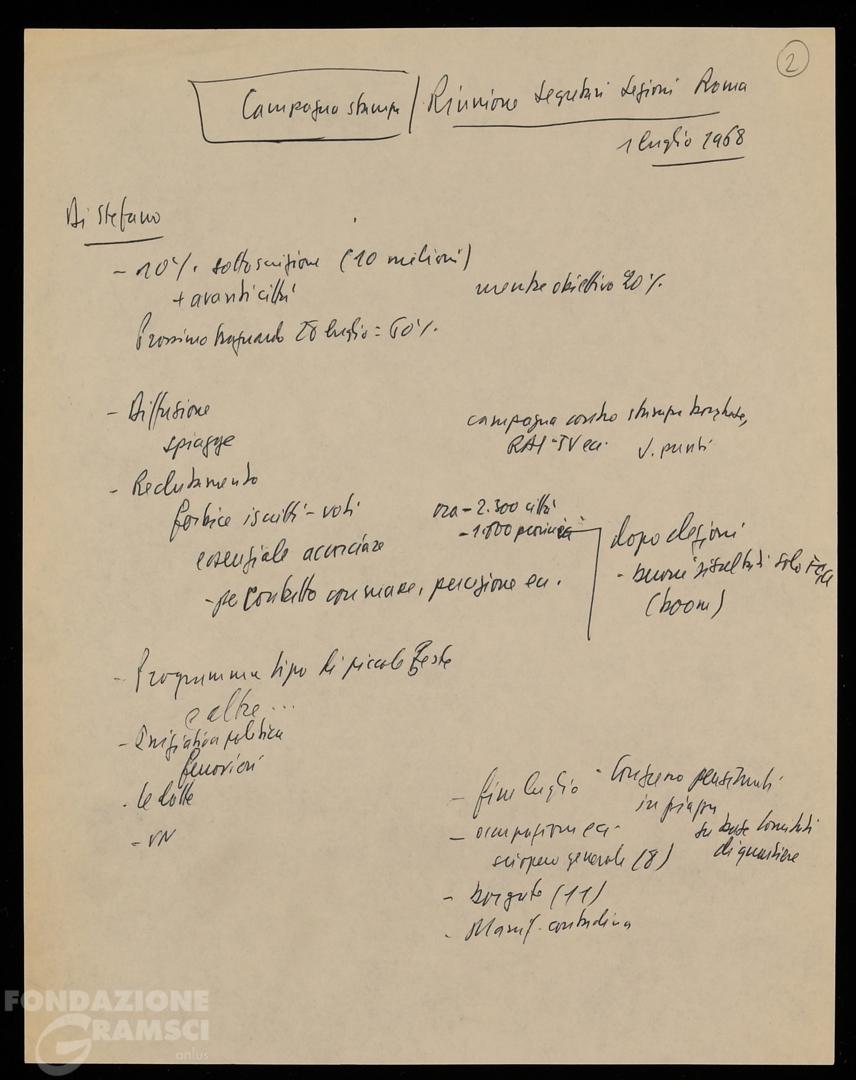 2
Campagna stampa / Riunione segretari sezioni Roma
1 luglio 1968
Di Stefano
- 10% sottoscrizione (10 milioni)
+ avanti città
mentre obiettivo 20%.
Prossimo traguardo 28 luglio = 60%.
- Diffusione
spiagge
campagna contro stampa borghese,
RAI-TV ecc. V. punti
- Reclutamento
forbice iscritti - voti
essenziale accorciare
- per contatto con masse, percezione ecc.
ora - 2.500 città
- 1.000 provincia
dopo elezioni
- buoni risultati solo FGCI
(boom)
- Programma tipo di piccole Feste
e altre ...
- Iniziativa politica
ferrovieri
- le lotte
- VN
- fine luglio - Convegno pensionati
in piazza
- occupazioni ecc.
su base Comitati
di quartiere
sciopero generale (8)
- borgate (11)
- Manif. contadina
FONDAZIONE
GRAMSCI
onlus